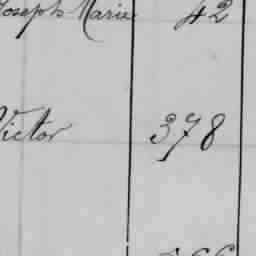 Joseph Marie 42
Victor 378